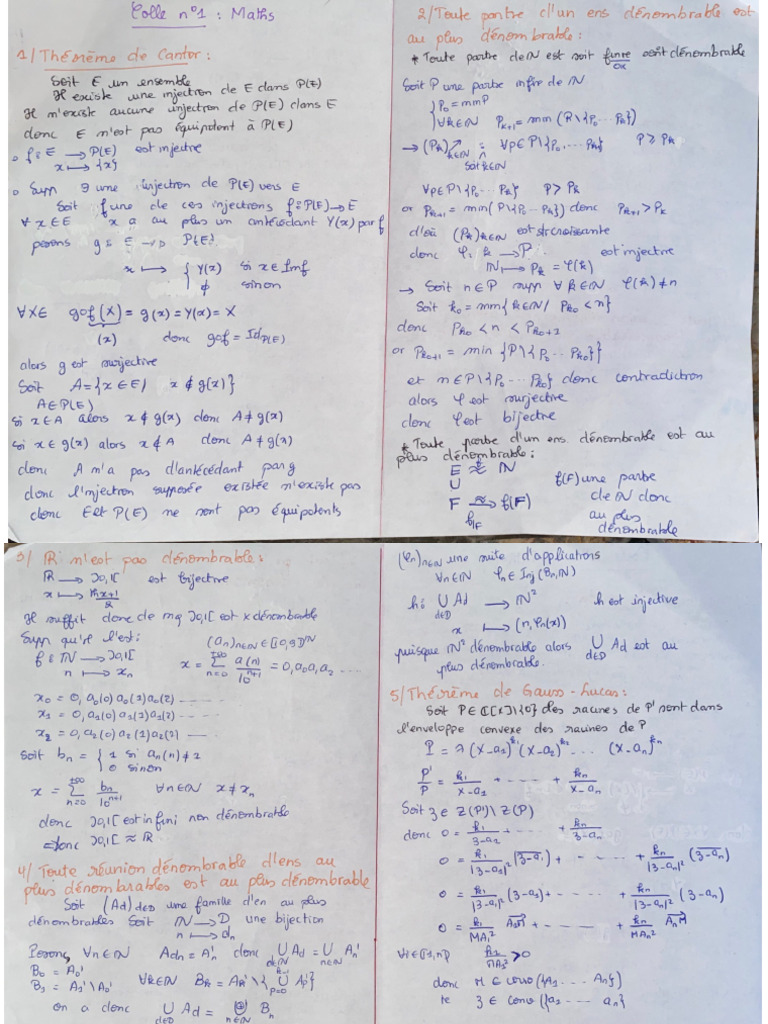 Colle n°1 : Maths
1/ Théorème de Cantor :
Soit E un ensemble
Il existe une injection de E dans P(E)
Il n'existe aucune injection de P(E) dans E
donc E n'est pas équipotent à P(E)
o f : E → P(E) est injective
x ↦ {x}
o Supp ∃ une injection de P(E) vers E
Soit f une de ces injections f : P(E) → E
∀x∈E x a au plus un antécédant Y(x) par f
posons g : E → P(E)
x ↦ { Y(x) si x∈Imf
∅ sinon
∀X∈ gof(X) = g(x) = Y(x) = X
(x) donc gof = Id P(E)
alors g est surjective
Soit A = {x∈E/ x∉g(x)}
A∈P(E)
si x∈A alors x∉g(x) donc A≠g(x)
si x∈g(x) alors x∉A donc A≠g(x)
donc A n'a pas d'antécédant par g
donc l'injection supposée existée n'existe pas
donc E et P(E) ne sont pas équipotents
2/ Toute partie d'un ens dénombrable est
au plus dénombrable :
* Toute partie de ℕ est soit finie soit dénombrable
Soit P une partie infinie de ℕ
{ P₀ = min P
∀k∈ℕ Pₖ₊₁ = min (P\{P₀ ... Pₖ})
→ (Pₖ)k∈ℕ ↗ : ∀p∈P\{P₀, ... Pₖ} P ≥ Pₖ
Soit k∈ℕ
∀p∈P\{P₀ ... Pₖ} P > Pₖ
or Pₖ₊₁ = min(P\{P₀ ... Pₖ}) donc Pₖ₊₁ > Pₖ
d'où (Pₖ)k∈ℕ est str croissante
donc φ : k → P est injective
ℕ ↦ Pₖ = φ(k)
→ Soit n∈P supp ∀k∈ℕ φ(k)≠n
Soit k₀ = min{k∈ℕ/ Pk₀ < n}
donc Pk₀ < n < Pk₀₊₁
or Pk₀₊₁ = min {P\{P₀ ... Pk₀}}
et n∈P\{P₀ ... Pk₀} donc contradiction
alors φ est surjective
donc φ est bijective
* Toute partie d'un ens dénombrable est au
plus dénombrable :
E ≈ ℕ
f
U f(F) une partie
F ≈ f(F) de ℕ donc
f|F au plus
dénombrable
3/ ℝ n'est pas dénombrable :
ℝ → ]0,1[ est bijective
Il suffit donc de mq ]0,1[ est x dénombrable
Supp qu'il l'est :
(aₙ)n∈ℕ ∈ [|0,9|]^ℕ
f : ℕ → ]0,1[
n ↦ xₙ
x = Σ_{n=0}^{+∞} a(n)/10ⁿ⁺¹ = 0, a₀ a₁ a₂ .....
x₀ = 0, a₀(0) a₀(1) a₀(2) ......
x₁ = 0, a₁(0) a₁(1) a₁(2) ......
x₂ = 0, a₂(0) a₂(1) a₂(2) ......
Soit bₙ = { 1 si aₙ(n)≠1
0 sinon
x = Σ_{n=0}^{+∞} bₙ/10ⁿ⁺¹ ∀n∈ℕ x≠xₙ
donc ]0,1[ est infini non dénombrable
⇒ donc ]0,1[ ≈ ℝ
4/ Toute réunion dénombrable d'ens au
plus dénombrables est au plus dénombrable
Soit (Ad)d∈D une famille d'en au plus
dénombrables Soit ℕ → D une bijection
n ↦ dₙ
Posons ∀n∈ℕ Adₙ = A'ₙ donc ∪_{d∈D} Ad = ∪_{n∈ℕ} A'ₙ
B₀ = A₀'
B₁ = A₁' \ A₀' ∀k∈ℕ Bₖ = Aₖ' \ {∪_{p=0}^{k-1} Ap'}
on a donc ∪_{d∈D} Ad = ⊎_{n∈ℕ} Bₙ
(φₙ)n∈ℕ une suite d'applications
∀n∈ℕ φₙ ∈ Inj(Bₙ,ℕ)
h : ∪_{d∈D} Ad → ℕ² h est injective
x ↦ (n, φₙ(x))
puisque ℕ² dénombrable alors ∪_{d∈D} Ad est au
plus dénombrable.
5/ Théorème de Gauss-Lucas :
Soit P∈ℂ[X]\{0} des racines de P' sont dans
l'enveloppe convexe des racines de P
P = λ(X-a₁)^k₁ (X-a₂)^k₂ ... (X-aₙ)^kₙ
P'/P = k₁/(X-a₁) + ..... + kₙ/(X-aₙ)
Soit z∈Z(P')\Z(P)
donc 0 = k₁/(z-a₁) + ..... + kₙ/(z-aₙ)
0 = k₁/|z-a₁|² (z̅-̅a̅₁) + ...... + kₙ/|z-aₙ|² (z̅-̅a̅ₙ)
0 = k₁/|z-a₁|² (z-a₁) + ...... + kₙ/|z-aₙ|² (z-aₙ)
0 = k₁/MA₁² A₁M⃗ + ...... + kₙ/MAₙ² AₙM⃗
donc M∈conv({A₁ ... Aₙ})
ie z∈conv({a₁ ... aₙ})